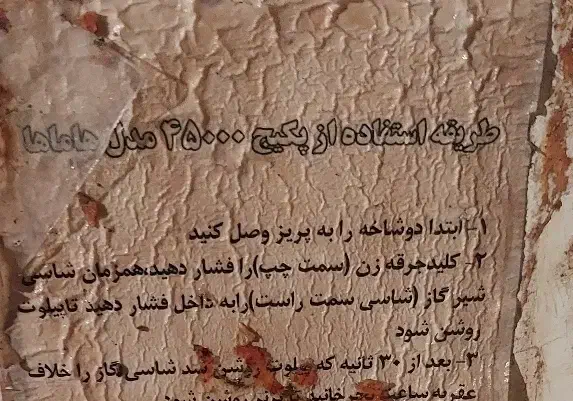 طریقه استفاده از پکیج ۴۵۰۰۰ مدل هاماها
۱- ابتدا دوشاخه را به پریز وصل کنید
۲- کلیدجرقه زن (سمت چپ)را فشار دهید،همزمان شاسی
شیر گاز (شاسی سمت راست)رابه داخل فشار دهید تاپیلوت
روشن شود
۳- بعد از ۳۰ ثانیه که پیلوت روشن شد شاسی گاز را خلاف
عقربه ساعت بچرخانید تا برنر روشن شود